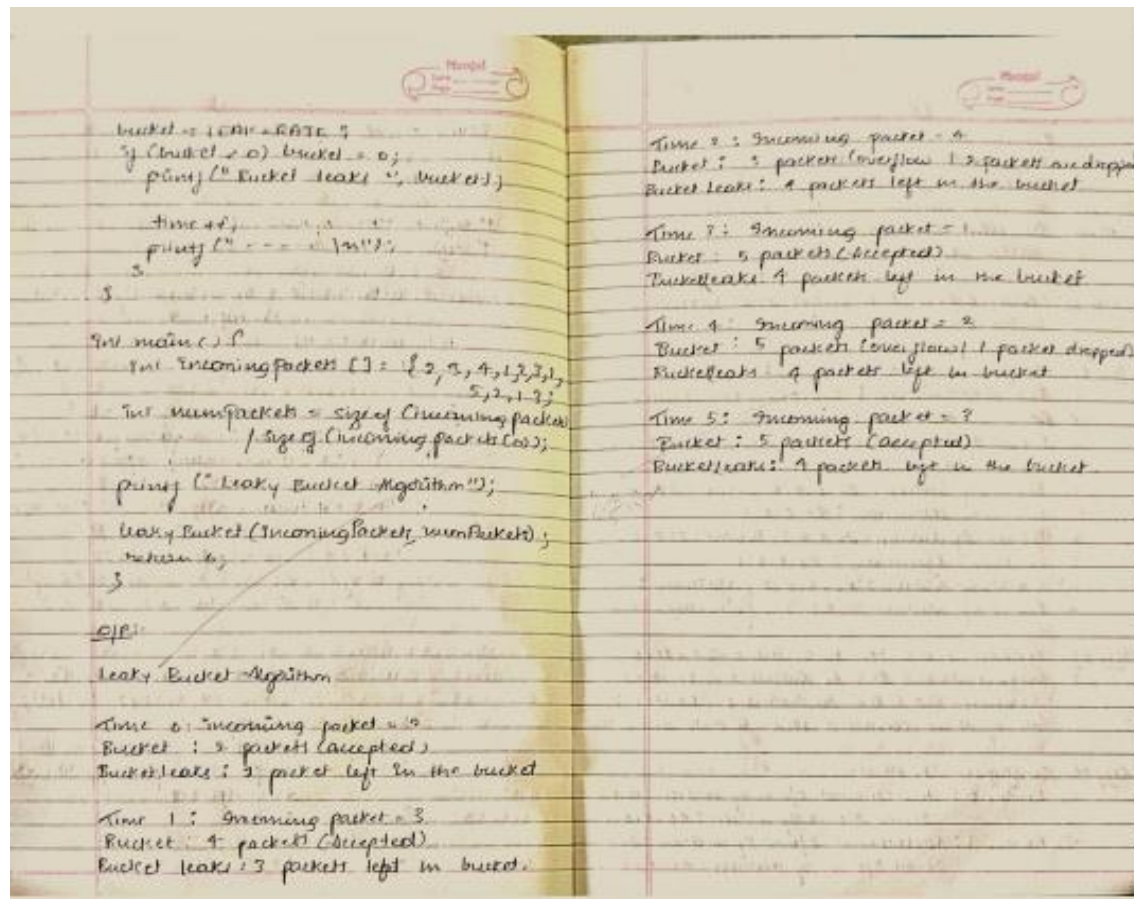 bucket -= LEAK-RATE;
if (bucket < 0) bucket = 0;
printf ("Bucket leaks ", bucket);
time ++;
printf ("- - - \n");
}
}
int main () {
int IncomingPackets [] = {2, 3, 4, 1, 2, 3, 1,
5, 2, 1, 3};
int numPackets = size of (incoming packets
/ size of (incoming packets [0]);
printf ("Leaky Bucket Algorithm");
leaky Bucket (IncomingPackets, numPackets);
return 0;
}
O/P:
Leaky Bucket Algorithm
Time 0: incoming packet = 2
Bucket : 2 packets (accepted)
Bucket leaks : 1 packet left in the bucket
Time 1 : Incoming packet = 3
Bucket : 4 packets (accepted)
Bucket leaks : 3 packets left in bucket.
Manipal
Time 2 : Incoming packet = 4
Bucket : 5 packets (overflow ) 2 packets are dropped
Bucket Leaks : 4 packets left in the bucket
Time 3 : Incoming packet = 1
Bucket : 5 packets (Accepted)
Bucketleaks 4 packets left in the bucket
Time 4 : Incoming packet = 2
Bucket : 5 packets (overflow) 1 packet dropped)
Bucketleaks 4 packets left in bucket
Time 5 : Incoming packet = 3
Bucket : 5 packets (accepted)
Bucketleaks : 4 packets left in the bucket